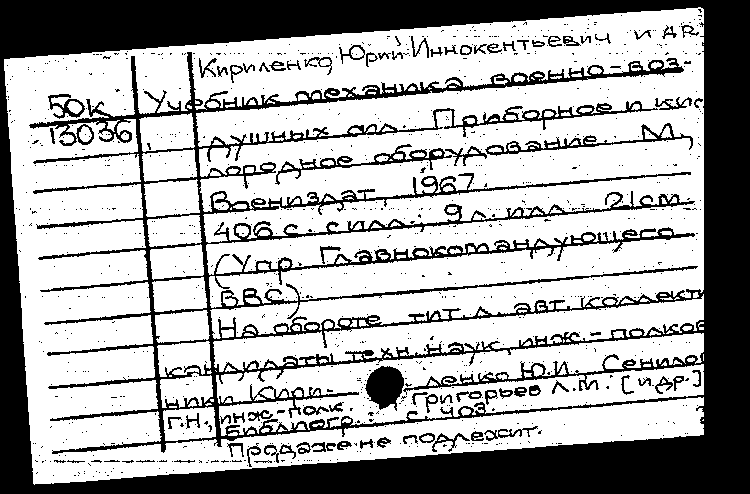 Кириленко Юрий Иннокентьевич и др
50к Учебник механика военно-воз-
13036 душных сил. Приборное и кис
лородное оборудование. М.,
Воениздат, 1967.
406 с. с илл.; 9 л. илл. 21см.
(Упр. Главнокомандующего
ВВС).
На обороте тит. л. авт. коллекти
кандидаты техн. наук, инж.-полков
ники Кири- ленко Ю.И. Сенилов
Г.Н., инж-полк. Григорьев Л.М. [и др.]
Библиогр.: с. 403.
Продаже не подлежит.